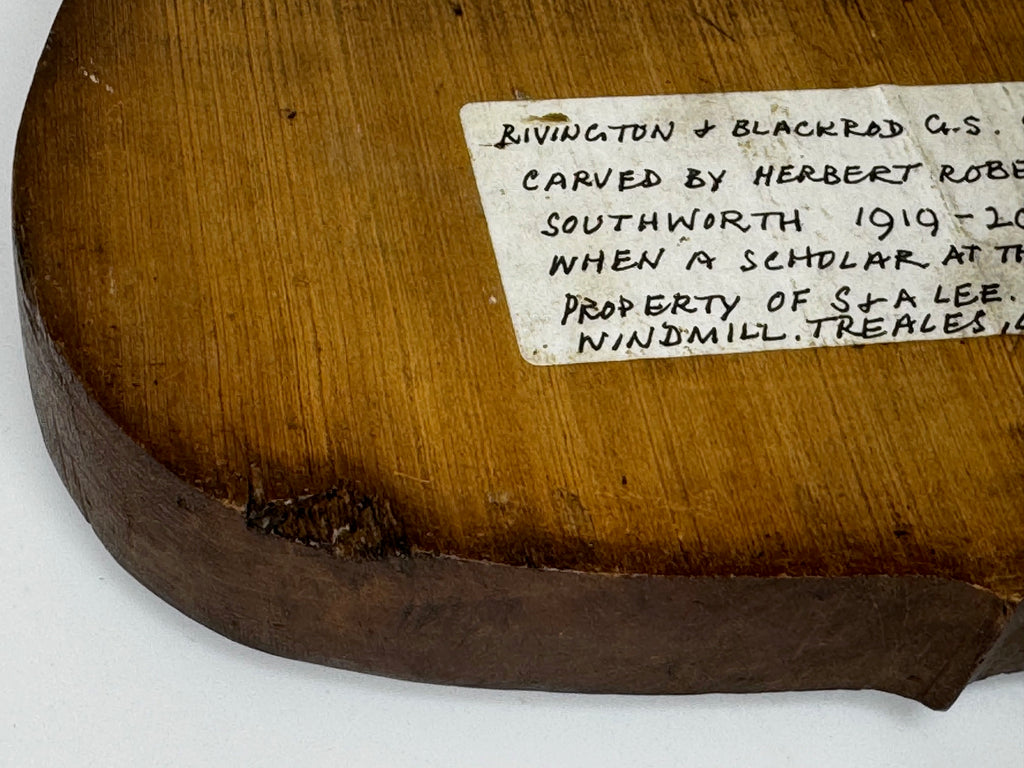 RIVINGTON & BLACKROD G.S.
CARVED BY HERBERT ROBE
SOUTHWORTH 1919-20
WHEN A SCHOLAR AT TH
PROPERTY OF S & A LEE.
WINDMILL. TREALES,